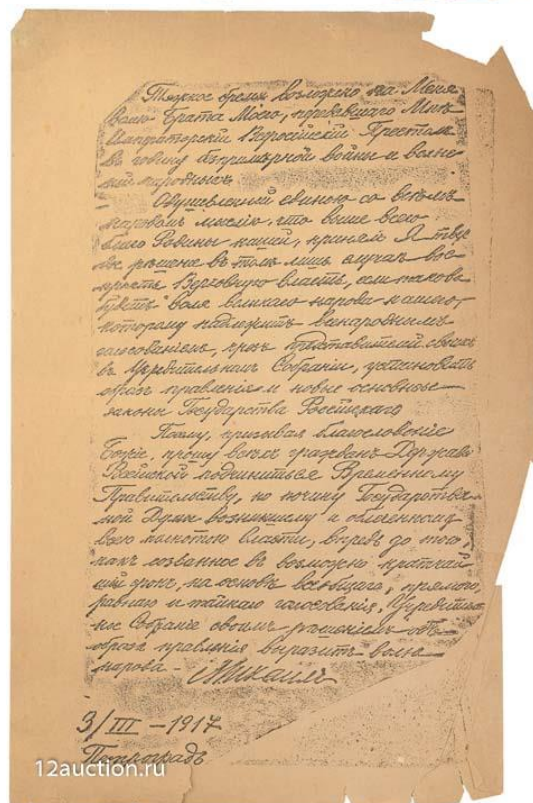 Тяжкое бремя возложено на Меня
волею Брата Моего, передавшего Мнѣ
Императорскій Всероссійскій Престолъ
въ годину безпримѣрной войны и волне-
ній народныхъ.
Одушевленный единою со всѣмъ
народомъ мыслію, что выше всего
благо Родины нашей, принялъ Я твер-
дое рѣшеніе въ томъ лишь случаѣ вос-
пріять Верховную власть, если такова
будетъ воля великаго народа нашего,
которому надлежитъ всенароднымъ
голосованіемъ, чрезъ представителей своихъ
въ Учредительномъ Собраніи, установить
образъ правленія и новые основные
законы Государства Россійскаго
Посему, призывая благословеніе
Божіе, прошу всѣхъ гражданъ Державы
Россійской подчиниться Временному
Правительству, по почину Государствен-
ной Думы возникшему и облеченному
всею полнотою власти, впредь до того,
какъ созванное въ возможно кратчай-
шій срокъ, на основѣ всеобщаго, прямого,
равнаго и тайнаго голосованія, Учредитель-
ное Собраніе своимъ рѣшеніемъ объ
образѣ правленія выразитъ волю
народа - Михаилъ
3/III - 1917
Петроградъ
12auction.ru